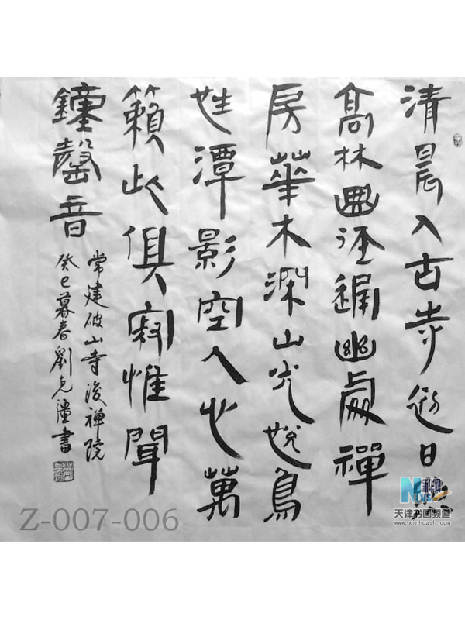 清晨入古寺初日照
高林曲徑通幽處禪
房華木深山光悅鳥
性潭影空人心萬
籟此俱寂惟聞
鐘磬音
常建破山寺後禪院
癸巳暮春劉克書
Z-007-006